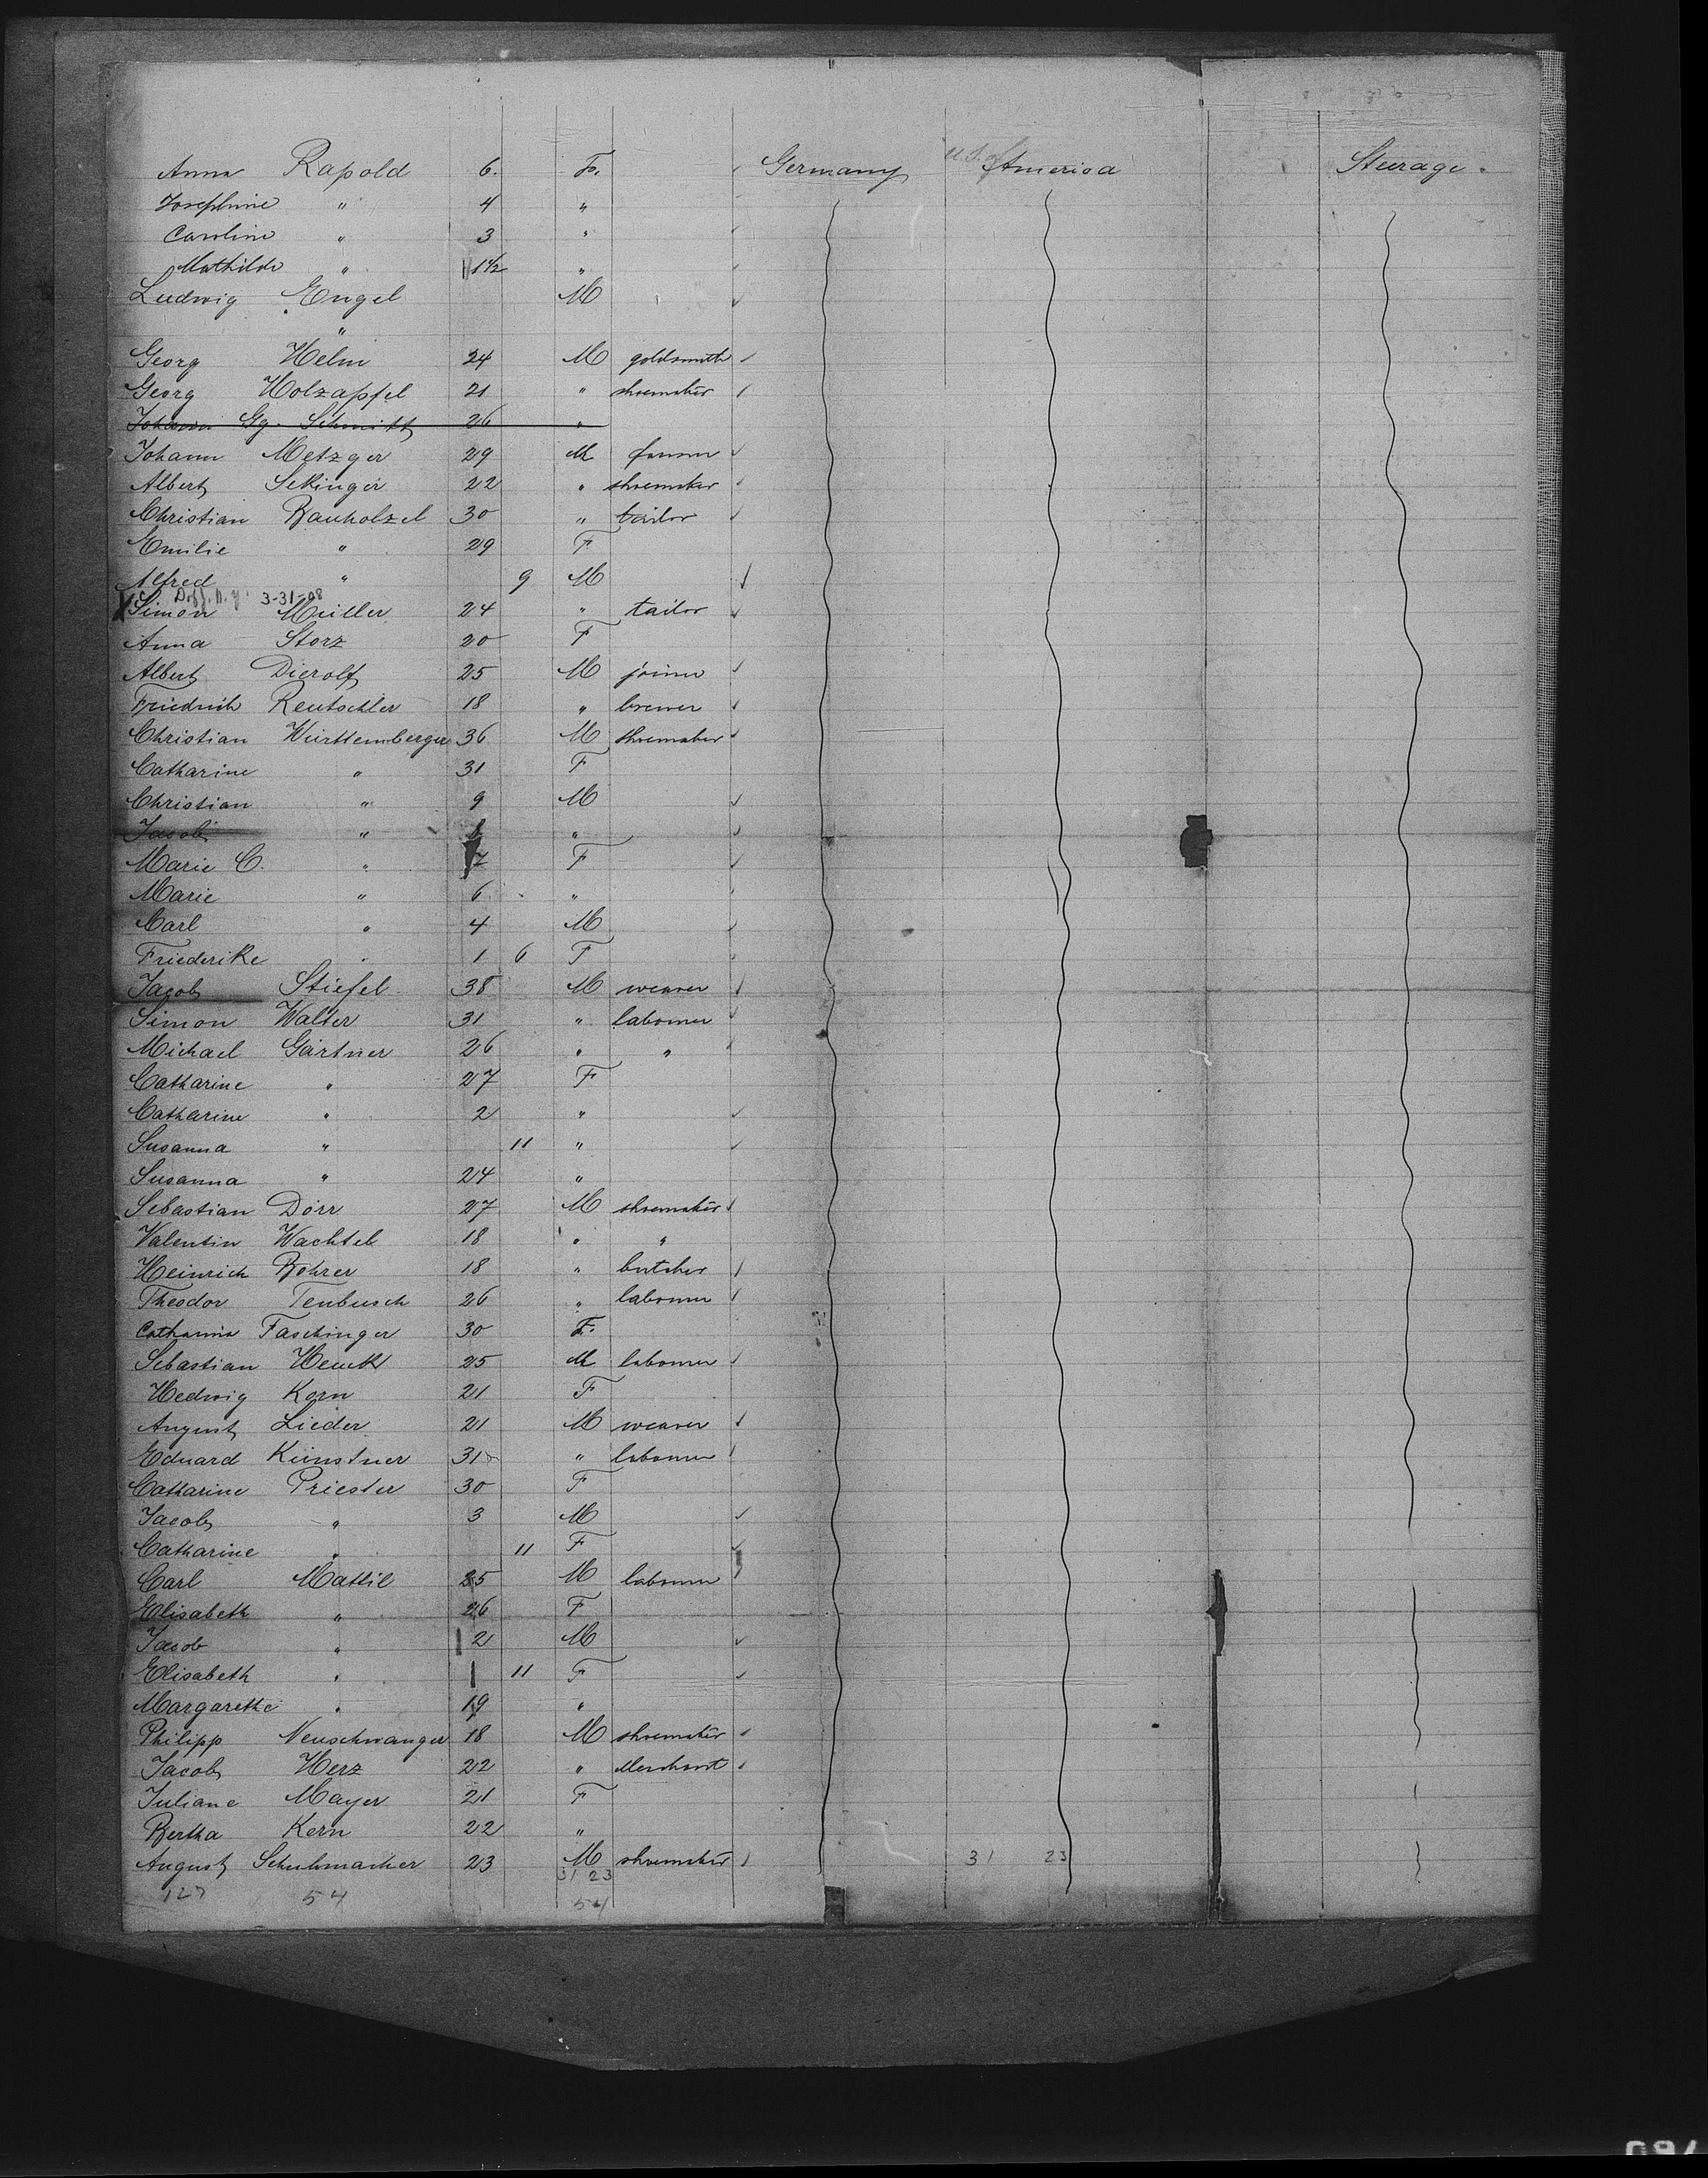 Anna Rapold 6. F. Germany U.S. of America Steerage.
Josephine " 4 "
Caroline " 3 "
Mathilde " 1½ "
Ludwig Engel M
"
Georg Helm 24 M goldsmith
Georg Holzapfel 21 " shoemaker
Johann Gg. Schmitt 26 "
Johann Metzger 29 M farmer
Albert Sekinger 22 " shoemaker
Christian Bauholzel 30 " tailor
Emilie " 29 F
Alfred " 9 M
3-31-08
X Simon Müller 24 " tailor
Anna Storz 20 F
Albert Dierolf 25 M joiner
Friedrich Reutschler 18 " brewer
Christian Württemberger 36 M shoemaker
Catharine " 31 F
Christian " 9 M
Jacob " "
Marie C. " 7 F
Marie " 6 "
Carl " 4 M
Friederike " 1 6 F
Jacob Stiefel 38 M weaver
Simon Walter 31 " labourer
Michael Gärtner 26 " "
Catharine " 27 F
Catharine " 2 "
Susanna " 11 "
Susanna " 24 "
Sebastian Dörr 27 M shoemaker
Valentin Wachtel 18 " "
Heinrich Bohrer 18 " butcher
Theodor Tenbusch 26 " labourer
Catharina Faschinger 30 F.
Sebastian Heuck 25 M labourer
Hedwig Korn 21 F
August Lieder 21 M weaver
Eduard Künstner 31 " labourer
Catharine Priester 30 F
Jacob " 3 M
Catharine " 11 F
Carl Mattil 25 M labourer
Elisabeth " 26 F
Jacob " 2 M
Elisabeth " 11 F
Margarethe " 19 "
Philipp Neuschwanger 18 M shoemaker
Jacob Herz 22 " Merchant
Juliane Mayer 21 F
Bertha Kern 22 "
August Schuhmacher 23 M shoemaker 31 23
31 23
127 54 54